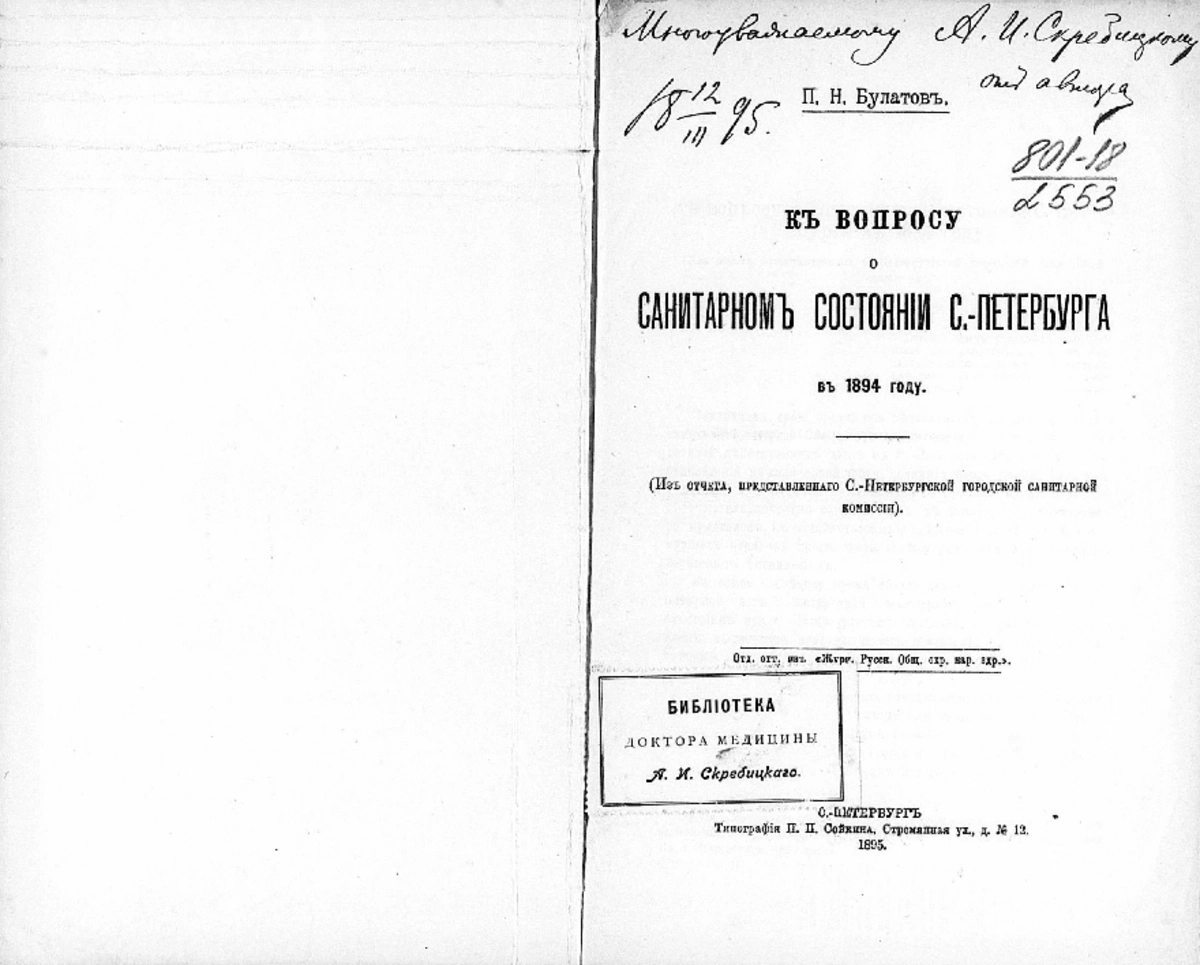 Многоуважаемому А. И. Скребицкому
отъ автора
18 12/III 95.
П. Н. Булатовъ.
801-18
2553
КЪ ВОПРОСУ
О
САНИТАРНОМЪ СОСТОЯНІИ С.-ПЕТЕРБУРГА
въ 1894 году.
(Изъ отчета, представленнаго С.-Петербургской городской санитарной
комиссіи).
Отд. отт. изъ «Журн. Русск. Общ. охр. нар. здр.».
БИБЛІОТЕКА
ДОКТОРА МЕДИЦИНЫ
А. И. Скребицкаго.
С.-ПЕТЕРБУРГЪ
Типографія П. П. Сойкина, Стремянная ул., д. № 12.
1895.